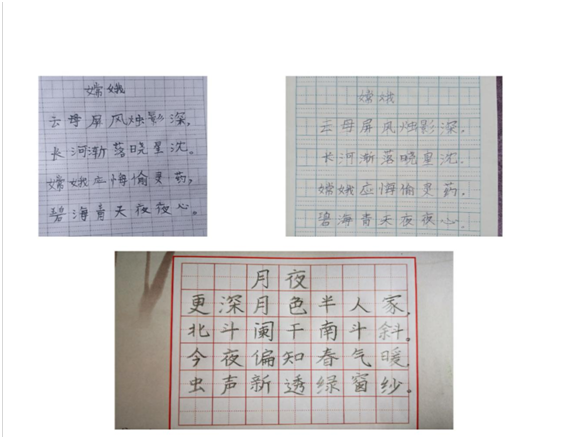 嫦娥
云母屏风烛影深，
长河渐落晓星沈。
嫦娥应悔偷灵药，
碧海青天夜夜心。
嫦娥
云母屏风烛影深，
长河渐落晓星沈。
嫦娥应悔偷灵药，
碧海青天夜夜心。
月夜
更深月色半人家，
北斗阑干南斗斜。
今夜偏知春气暖，
虫声新透绿窗纱。